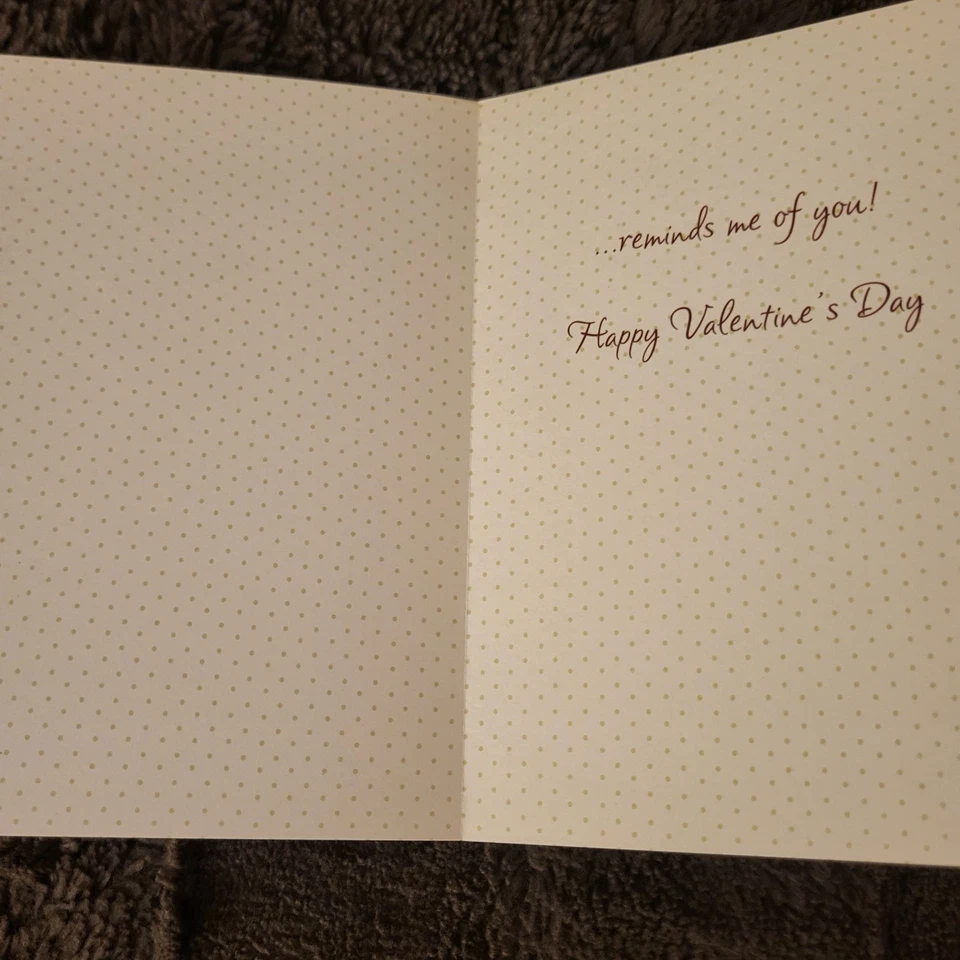 ...reminds me of you!
Happy Valentine's Day